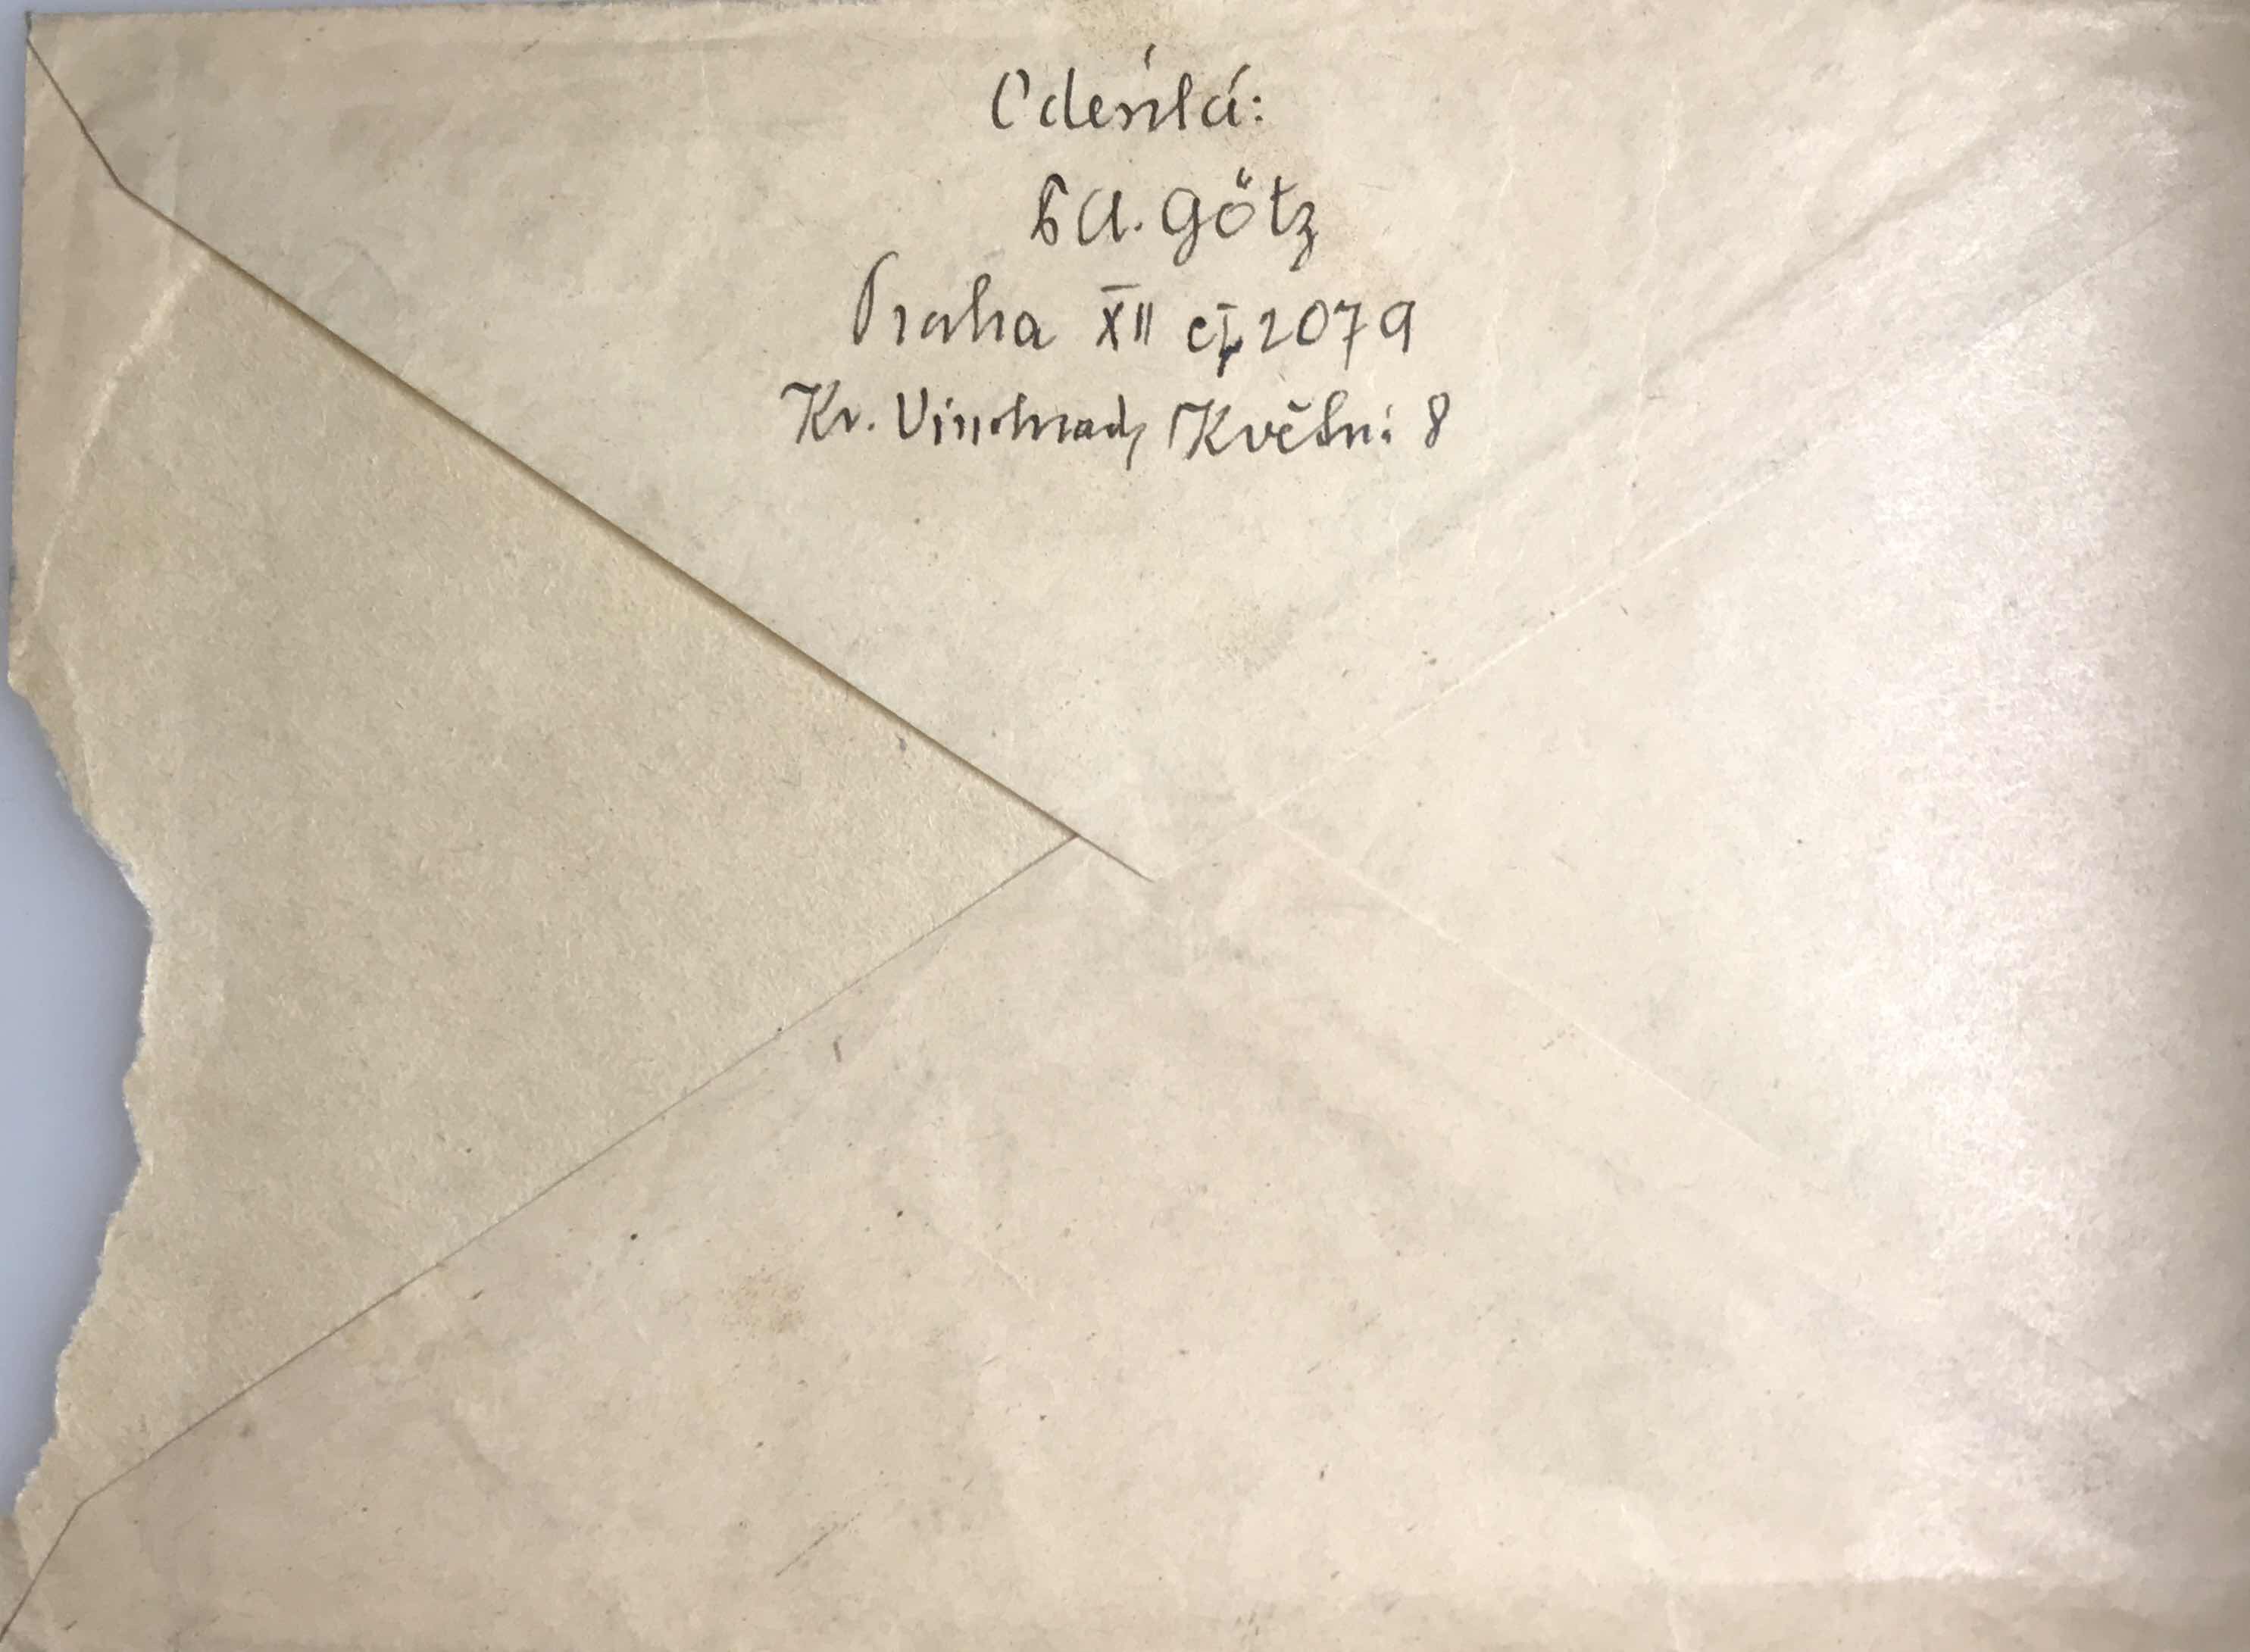 Odesílá:
A. Götz
Praha XII čj 2079
Kr. Vinohrady Květní 8